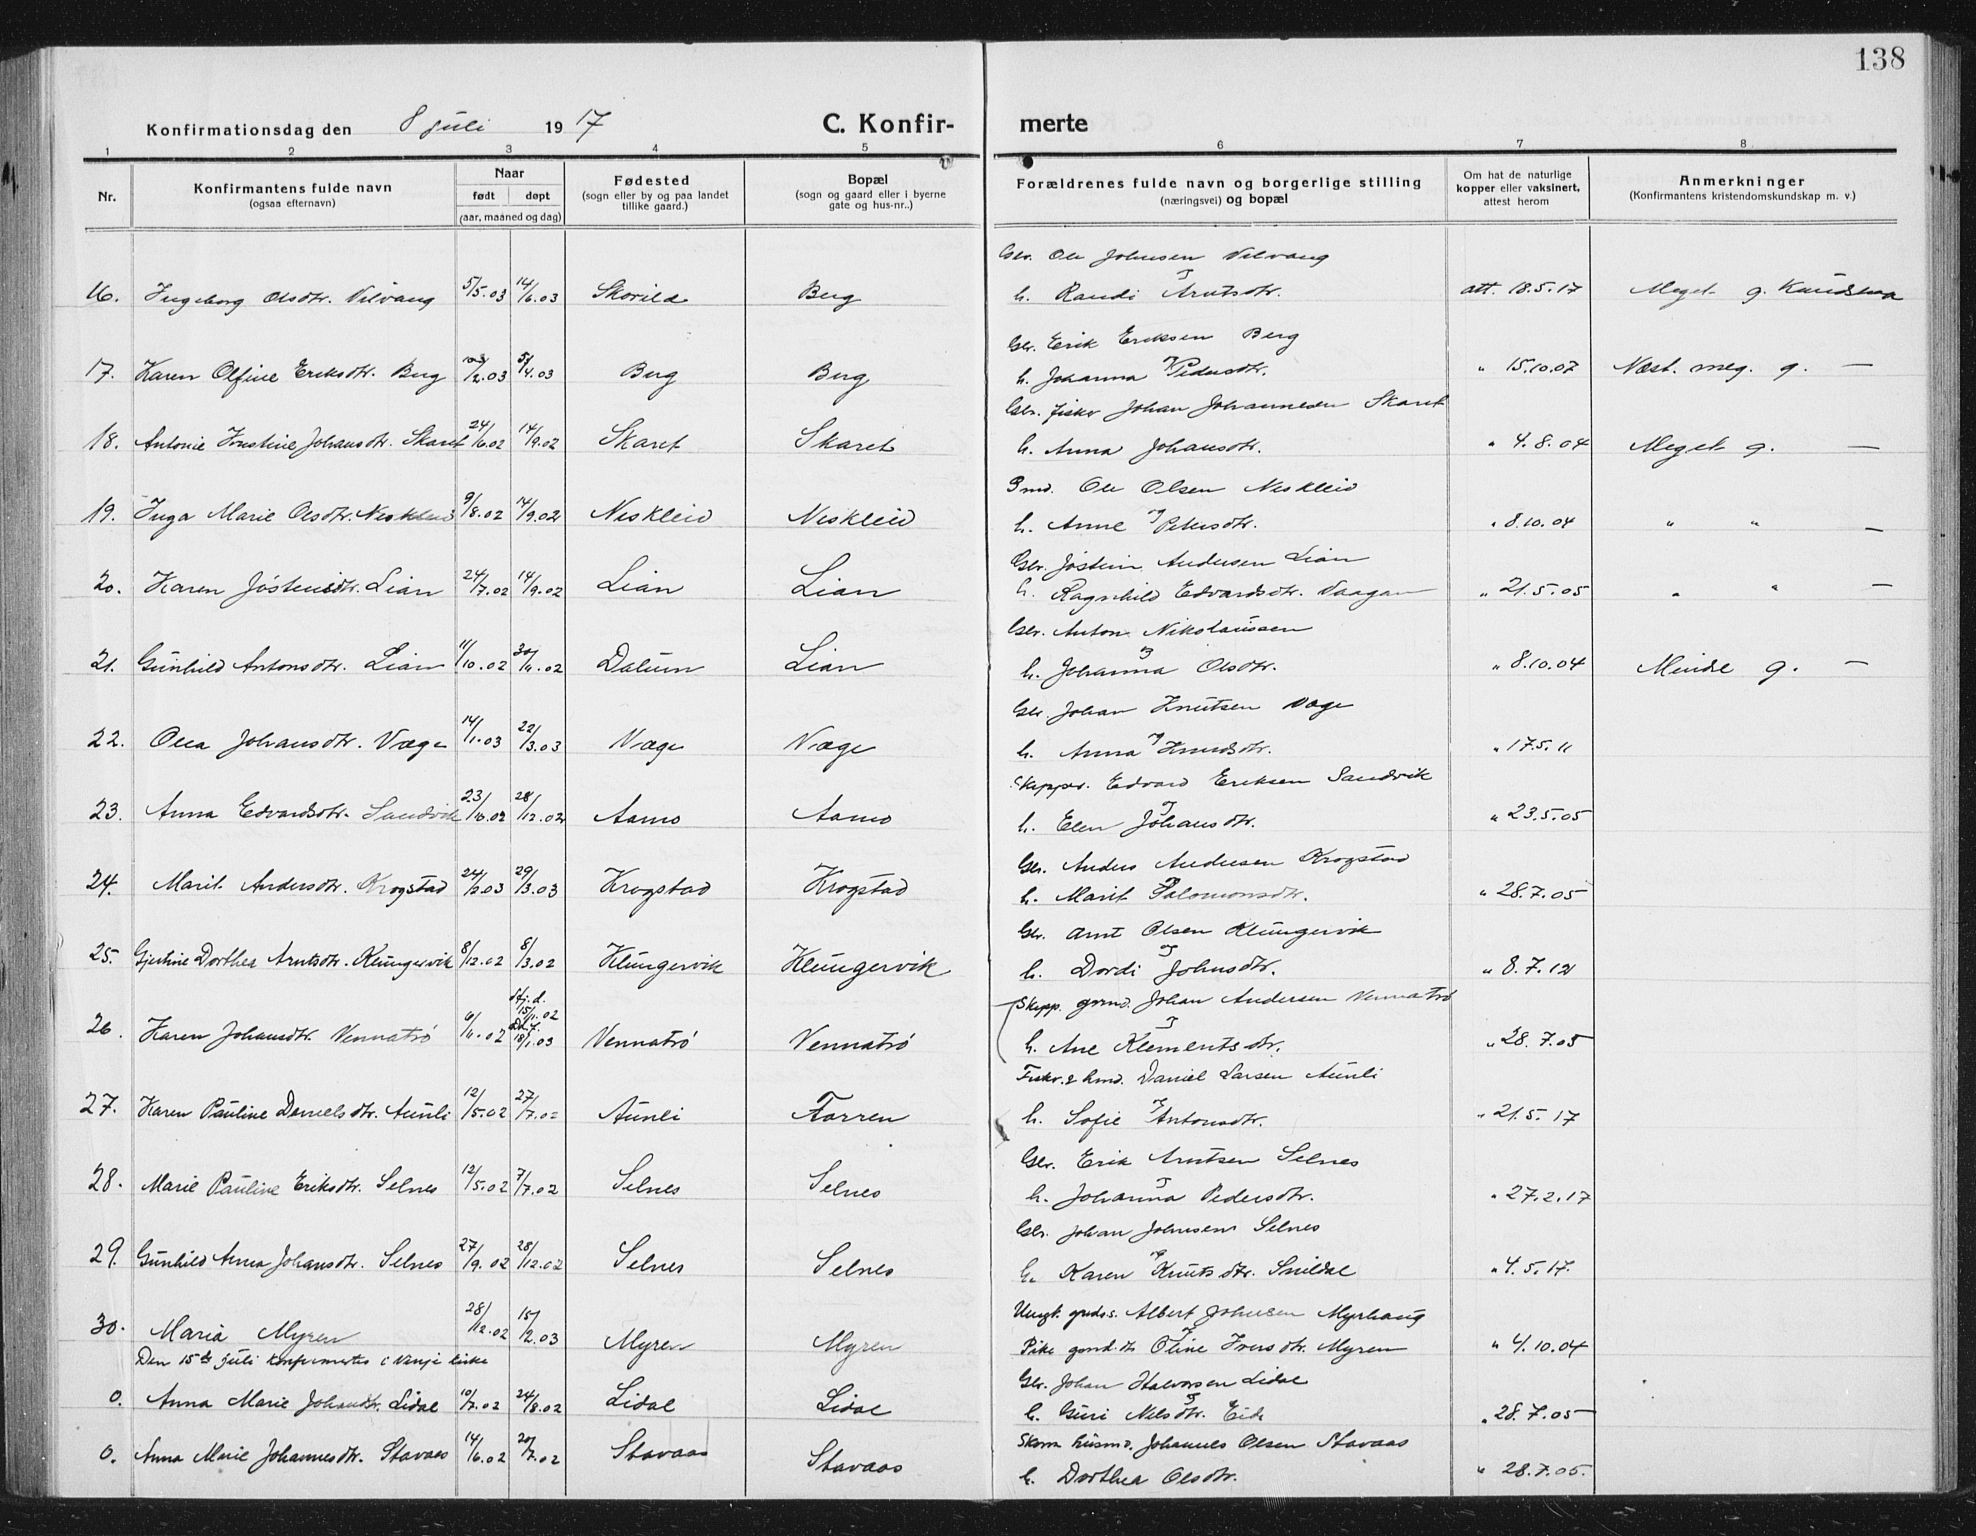 138
Konfirmationsdag den 8 juli 1917 C. Konfir- merte
1 2 3 4 5 6 7 8
Nr. Konfirmantens fulde navn (ogsaa efternavn) Naar født døpt (aar, maaned og dag) Fødested (sogn eller by og paa landet tillike gaard.) Bopæl (sogn og gaard eller i byerne gate og hus-nr..) Forældrenes fulde navn og borgerlige stilling (næringsvei) og bopæl Om hat de naturlige kopper eller vaksinert, attest herom Anmerkninger (Konfirmantens kristendomskundskap m. v.)
Gbr. Ole Johnsen Vilvang
16. Ingeborg Olsdtr. Vilvang 5/5.03 14/6.03 Skorild Berg h. Randi Arntsdtr. att. 18.5.17 Meget g. Kundskap
Gbr. Erik Eriksen Berg
17. Karen Olfine Eriksdtr. Berg /2.03 5/4.03 Berg Berg h. Johanna Pedersdtr. " 15.10.07 Næst. meg. g. —
Gbr. fisker Johan Johannesen Skaret
18. Antonie Kristine Johansdtr. Skaret 24/6.02 14/9.02 Skaret Skaret h. Anna Johansdtr. " 4.8.04 Meget g. —
Gmd. Ole Olsen Neskleid
19. Inga Marie Olsdtr. Neskleid 9/8.02 14/9.02 Neskleid Neskleid h. Anne Petersdtr. " 8.10.04 " " —
Gbr. Jøstein Andersen Lian
20. Karen Jøsteinsdtr. Lian 24/7.02 14/9.02 Lian Lian h. Ragnhild Edvardsdtr. Vaagan " 21.5.05 " " —
Gbr. Anton Nikolaussen
21. Gunhild Antonsdtr. Lian 11/10.02 30/11.02 Dalum Lian h. Johanna Olsdtr. " 8.10.04 Mindre g. —
Gbr. Johan Knutsen Væge
22. Olea Johansdtr. Væge 14/1.03 22/3.03 Væge Væge h. Anna Knudsdtr. " 17.5.11
Skipper. Edvard Eriksen Sandvik
23. Anna Edvardsdtr. Sandvik 23/10.02 28/12.02 Aamo Aamo h. Elen Johansdtr. " 23.5.05
Gbr. Anders Andersen Krogstad
24. Marit Andersdtr. Krogstad 29/3.03 Krogstad Krogstad h. Marit Salomonsdtr. " 28.7.05
Gbr. Arnt Olsen Klungervik
25. Gjertine Dorthea Arntsdtr. Klungervik 8/12.02 8/3.02 Klungervik Klungervik h. Dordi Johnsdtr. " 8.7.12
Skipp. grmd. Johan Andersen Vennatrø
26. Karen Johansdtr. Vennatrø 6/11.02 Hj.d. 15/11.02 18/1.03 Vennatrø Vennatrø h. Ane Klementsdtr. " 28.7.05
Fisker & hmd. Daniel Larsen Aunli
27. Karen Pauline Danielsdtr. Aunli 12/5.02 27/7.02 Aunli Forren h. Sofie Antonsdtr. " 21.5.17
Gbr. Erik Arntsen Selnes
28. Marie Pauline Eriksdtr. Selnes 12/5.02 7/7.02 Selnes Selnes h. Johanna Pedersdtr. " 27.2.17
Gbr. Johan Johnsen Selnes
29. Gunhild Anna Johansdtr. Selnes 27/9.02 28/12.02 Selnes Selnes h. Karen Knutsdtr. Snildal " 4.5.17.
Ungk. grds.s. Albert Johnsen Myrhaug
30. Maria Myren 28/12.02 15/2.03 Myren Myren Pike grmd.dtr Oline Iversdtr. Myren " 4/.10.04
Den 15de juli konfirmertes i Vinje kirke
Gbr. Johan Halvorsen Lidal
0. Anna Marie Johansdtr. Lidal 10/7.02 24/8.02 Lidal Lidal h. Guri Nilsdtr. Eide " 28.7.05
Skom. husmd. Johannes Olsen Stavaas
0. Anna Marie Johannesdtr. Stavaas 14/6.02 20/7.02 Stavaas Stavaas h. Dorthea Olsdtr. " 28.7.05.